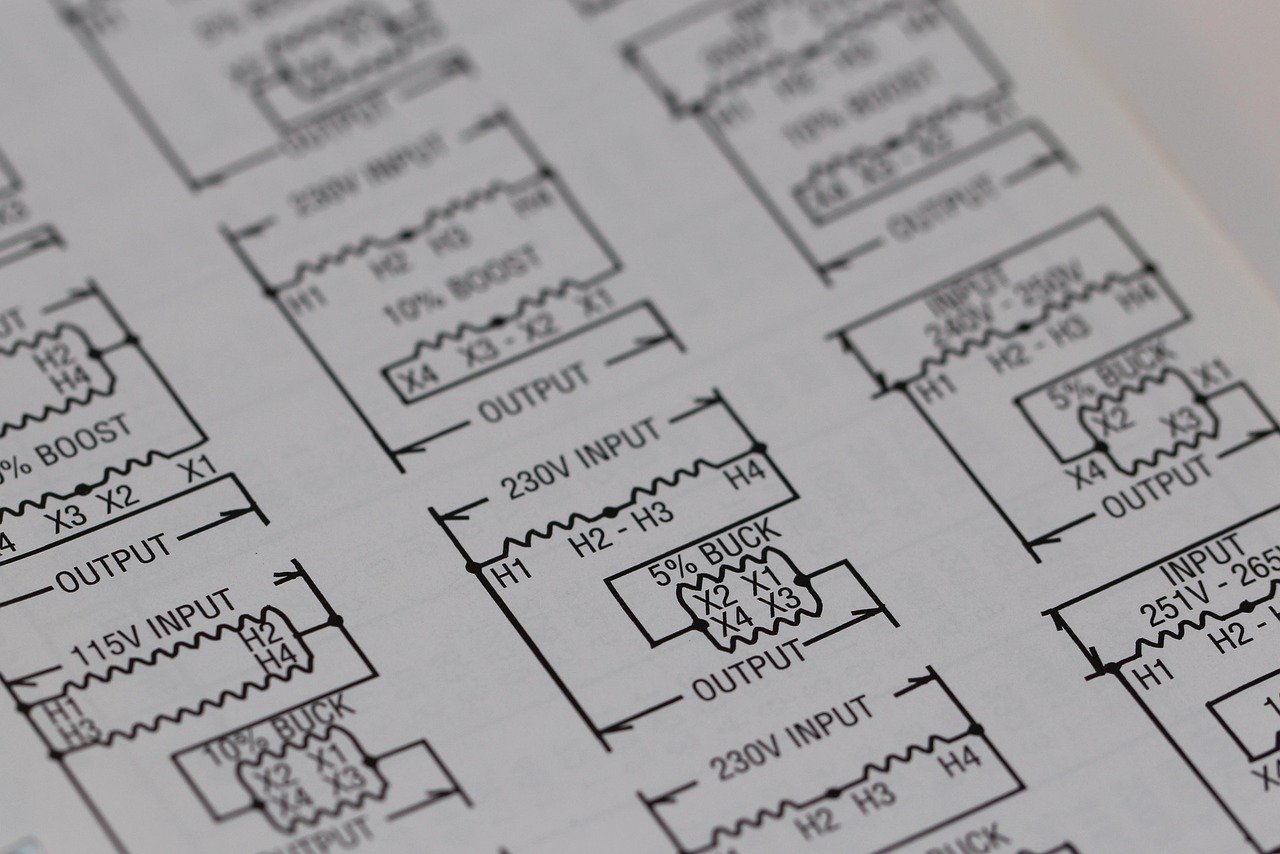 OUTPUT
230V INPUT
H1 H2 H3 H4
10% BOOST
X4 X3 - X2 X1
OUTPUT
H1
10% BOOST
X4 X3 - X2
OUTPUT
INPUT
240V - 250V
H1 H2 - H3 H4
5% BUCK
X2 X3 X1
X4
OUTPUT
H2
H4
% BOOST
X3 X2 X1
OUTPUT
230V INPUT
H1 H2 - H3 H4
5% BUCK
X2 X1
X4 X3
OUTPUT
INPUT
251V - 265V
H1 H2 -
115V INPUT
H1 H2
H3 H4
10% BUCK
X2 X1
X4 X3
OUTPUT
230V INPUT
H1 H2 H3 H4
BUCK
X4